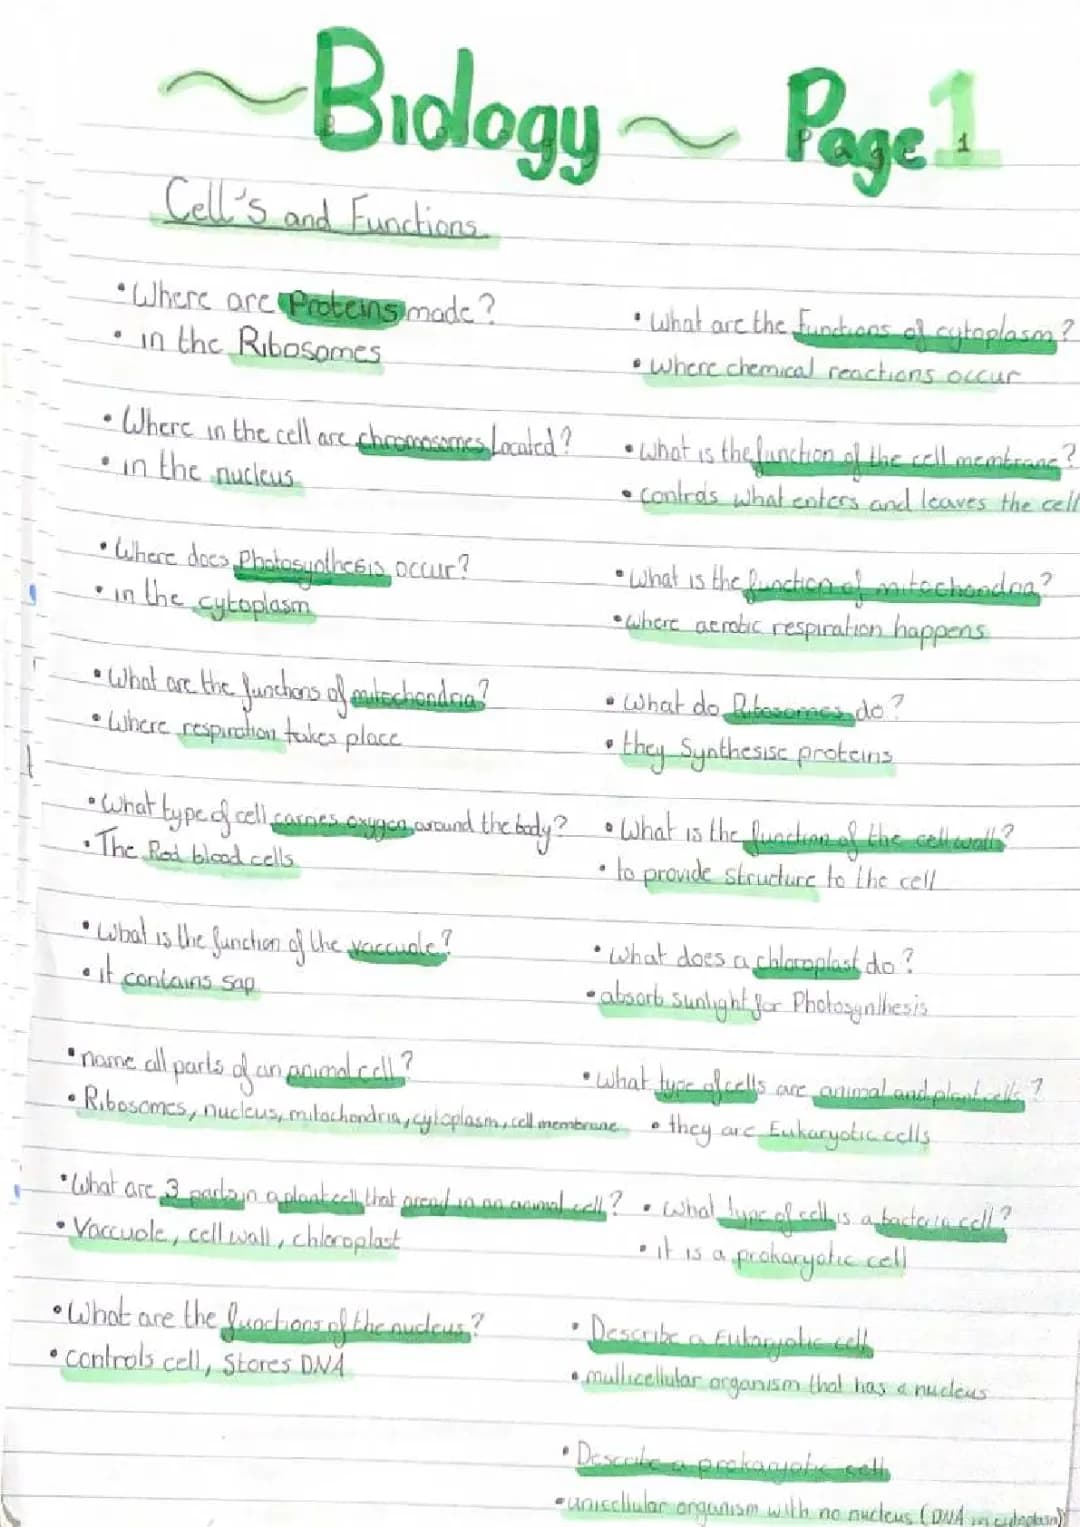 ~Biology~ Page 1
Cell's and Functions
• Where are Proteins made?
• in the Ribosomes
• Where in the cell are chromosomes Located?
• in the nucleus
• Where does Photosynthesis occur?
• in the cytoplasm
• What are the functions of mitochondria?
• Where respiration takes place
• What type of cell carries oxygen around the body?
• The Red blood cells
• What is the function of the vaccuole?
• it contains sap
• name all parts of an animal cell?
• Ribosomes, nucleus, mitochondria, cytoplasm, cell membrane
• What are 3 parts in a plant cell that aren't in an animal cell?
• Vaccuole, cell wall, chloroplast
• What are the functions of the nucleus?
• controls cell, Stores DNA
• What are the functions of cytoplasm?
• Where chemical reactions occur
• What is the function of the cell membrane?
• controls what enters and leaves the cell
• What is the function of mitochondria?
• where aerobic respiration happens
• What do Ribosomes do?
• they Synthesise proteins
• What is the function of the cell wall?
• to provide structure to the cell
• What does a chloroplast do?
• absorb sunlight for Photosynthesis
• What type of cells are animal and plant cells?
• they are Eukaryotic cells
• What type of cell is a bacteria cell?
• it is a prokaryotic cell
• Describe a Eukaryotic cell
• multicellular organism that has a nucleus
• Describe a prokaryotic cell
• unicellular organism with no nucleus (DNA in cytoplasm)